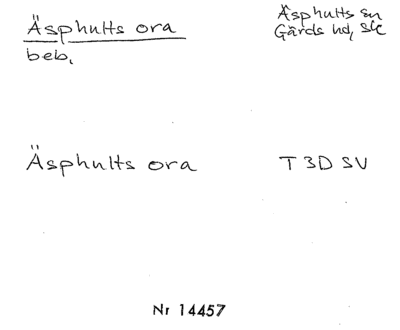 Äsphults ora
beb.
Äsphults sn
Gärds hd, Sk
Äsphults ora
T 3D SV
Nr 14457